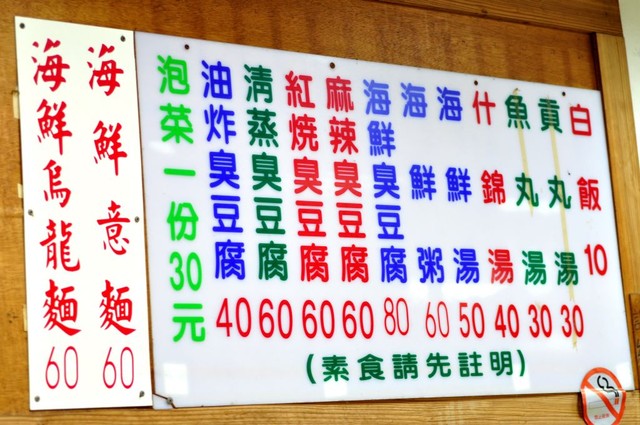 海鮮烏龍麵60
海鮮意麵60
泡菜一份30元
油炸臭豆腐40
清蒸臭豆腐60
紅燒臭豆腐60
麻辣臭豆腐60
海鮮臭豆腐80
海鮮粥60
海鮮湯50
什錦湯40
魚丸湯30
貢丸湯30
白飯10
(素食請先註明)